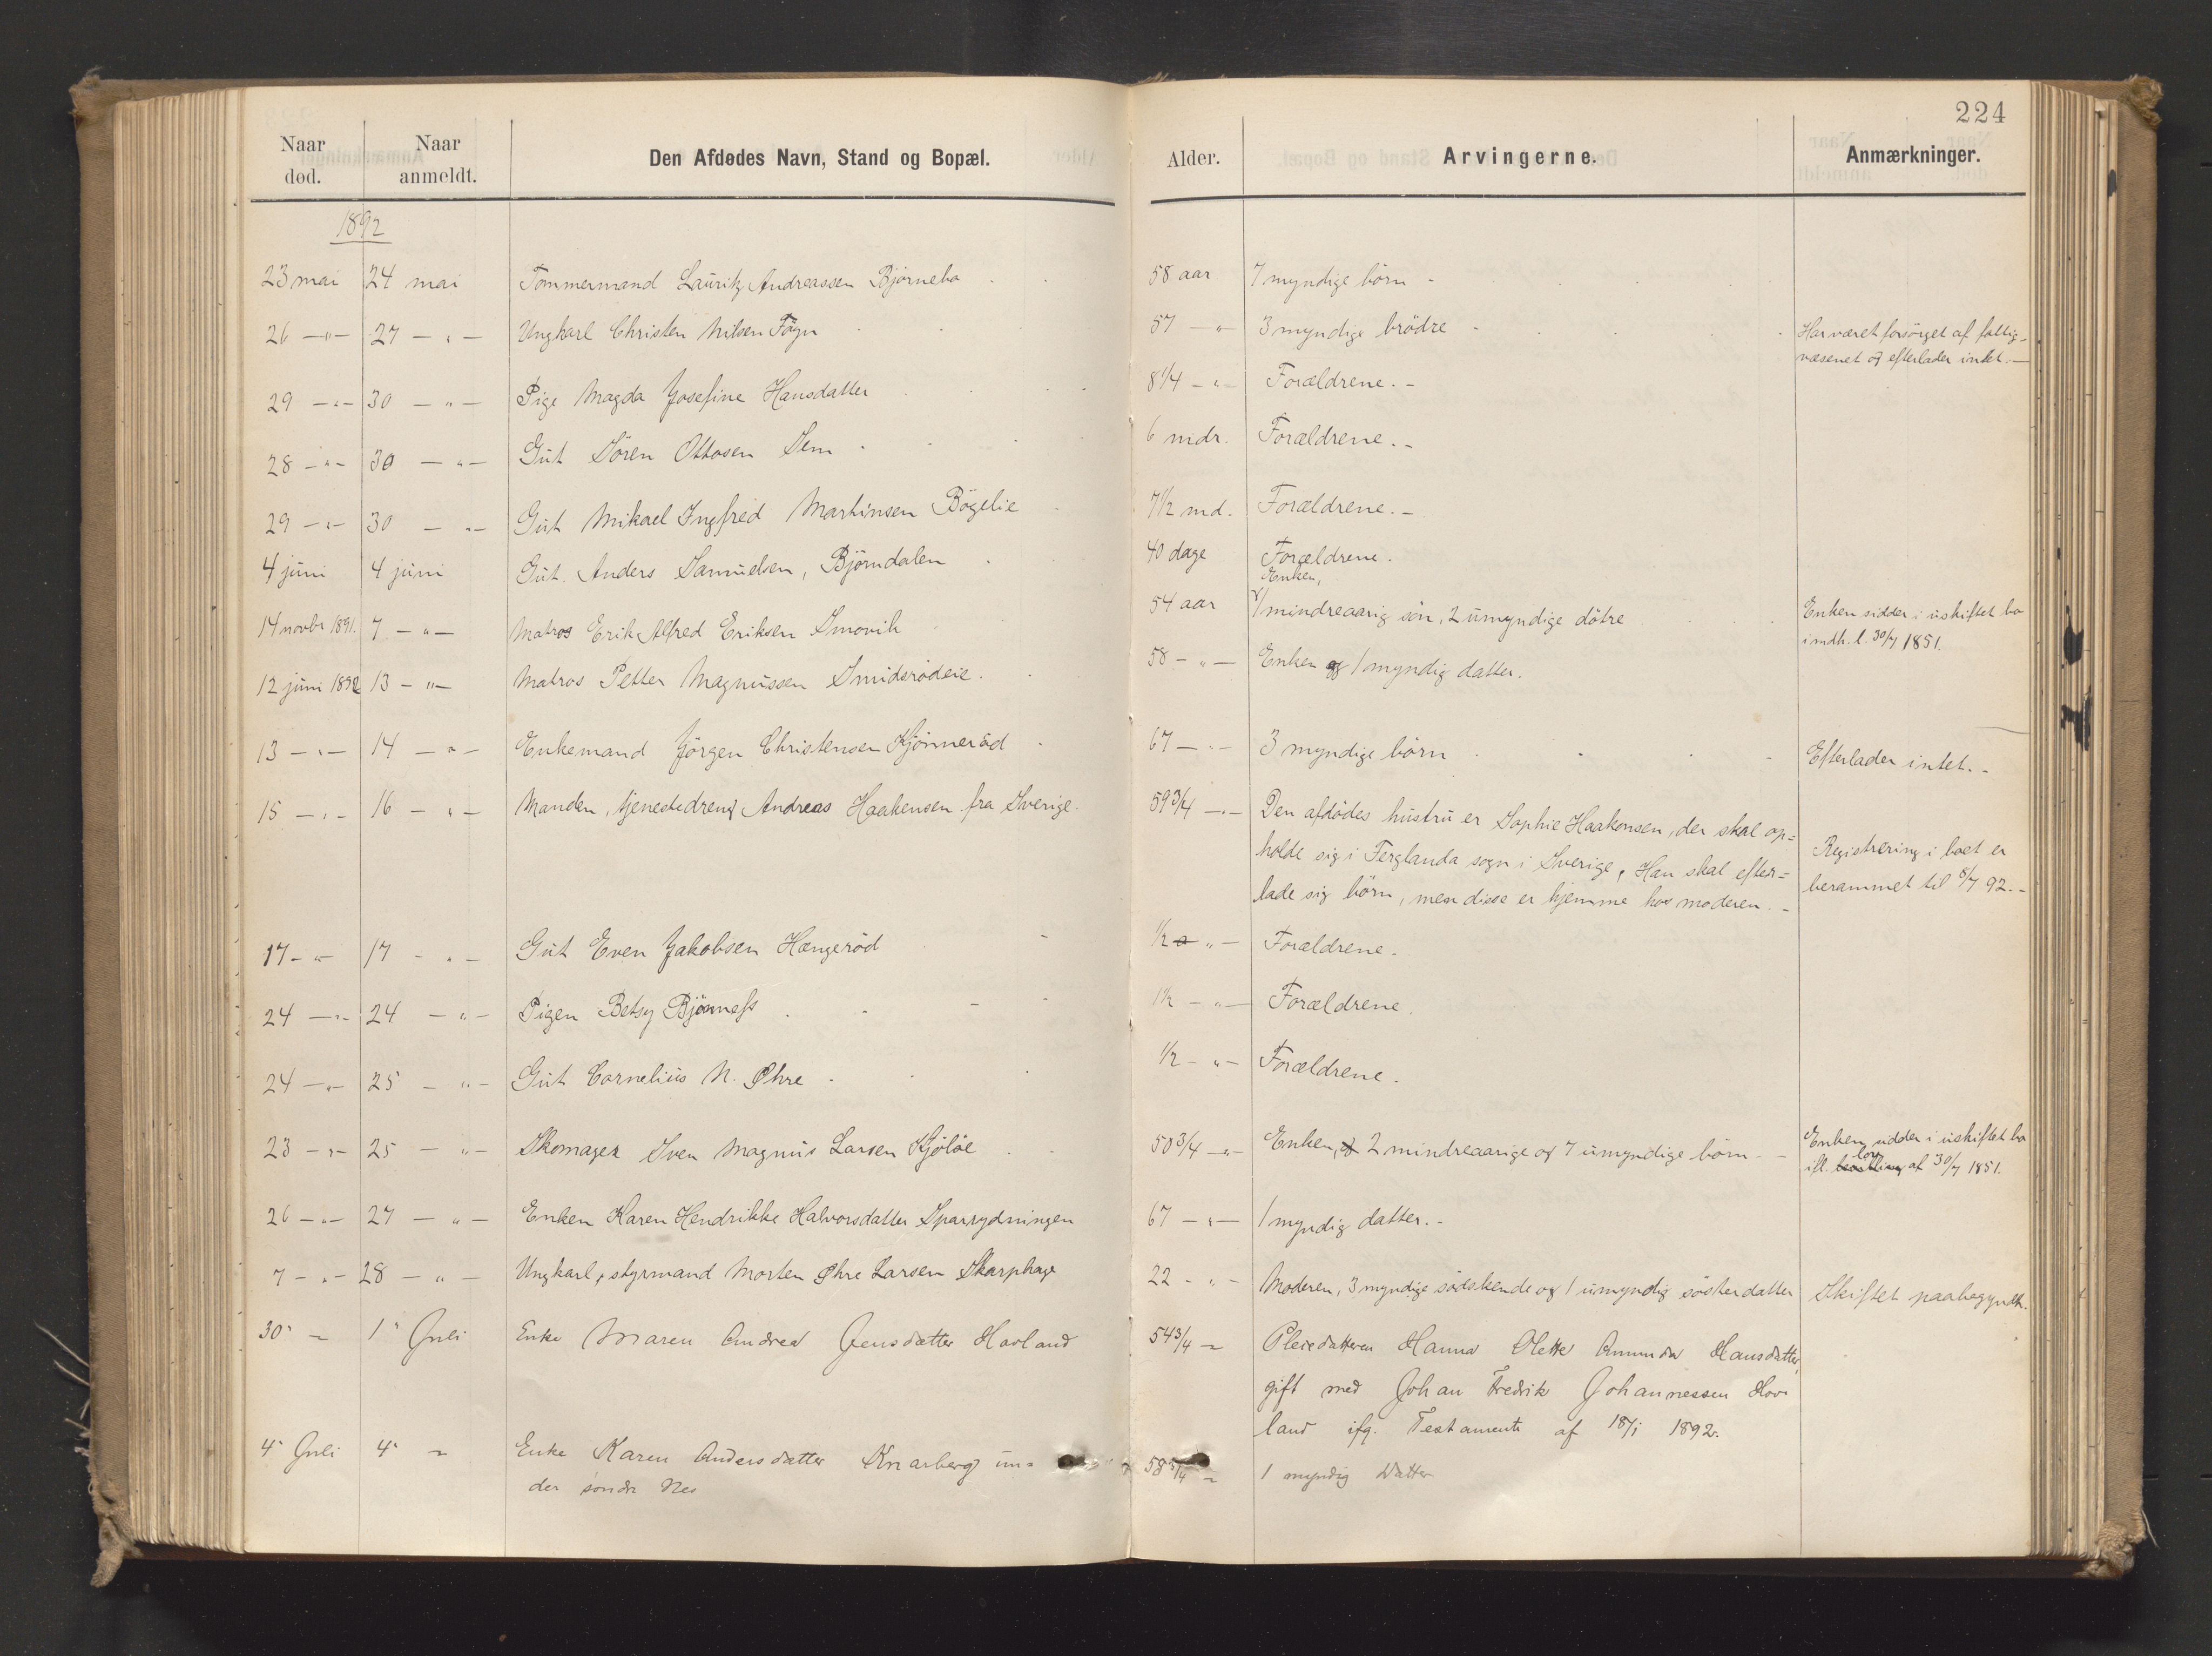 224
Naar død. Naar anmeldt. Den Afdødes Navn, Stand og Bopæl. Alder. Arvingerne. Anmærkninger.
1892
23 mai 24 mai Tømmermand Lauritz Andreassen Bjørnebo 58 aar 7 myndige børn -
26 -"- 27 -"- Ungkarl Christen Nilsen Føyn 57 -"- 3 myndige brødre - Har været forsørget af fattig-
væsenet og efterlader intet.-
29 -"- 30 -"- Pige Magda Josefine Hansdatter 8 1/4 -"- Forældrene.-
28 -"- 30 -"- Gut Sören Ottosen Sem 6 mdr. Forældrene.-
29 -"- 30 -"- Gut Mikael Ingfred Martinsen Bøgelie 7 1/2 md. Forældrene.-
4 juni 4 juni Gut. Anders Samuelsen, Bjørndalen 40 dage Forældrene.
Enken,
14 novbr 1891. 7 -"- Matros Erik Alfred Eriksen Smovik 54 aar 1 mindreaarig sön, 2 umyndige døtre Enken sidder i uskiftet bo
i mdh. l. 30/7 1851.
12 juni 1892 13 -"- Matros Petter Magnussen Smidsrødeie. 58 -"- Enken og 1 myndig datter.
13 -"- 14 -"- Enkemand Jörgen Christensen Kjønnerød 67 -"- 3 myndige børn Efterlader intet.-
15 -"- 16 -"- Manden, tjenestedreng Andreas Haakensen fra Sverige. 59 3/4 -"- Den afdødes hustru er Sophie Haakonsen, der skal op=
holde sig i Ferglanda sogn i Sverige, Han skal efter=
lade sig børn, men disse er hjemme hos moderen.-
Registrering i boet er
berammet til 8/7 92.-
17 -"- 17 -"- Gut Even Jakobsen Hængerød 1/2 a -"- Forældrene.
24 -"- 24 -"- Pigen Betsy Bjønness 1 1/2 -"- Forældrene.
24 -"- 25 -"- Gut Cornelius N. Øhre 1/2 -"- Forældrene.
23 -"- 25 -"- Skomager Sven Magnus Larsen Kjøløe 50 3/4 -"- Enken, og 2 mindreaarige og 7 umyndige børn - Enken sidder i uskiftet bo
ifl. lov af 30/7 1851.
26 -"- 27 -"- Enken Karen Hendrikke Halvorsdatter Sparrydningen 67 -"- 1 myndig datter.-
7 -"- 28 -"- Ungkarl, styrmand Morten Øhre Larsen Skarphage 22 -"- Moderen, 3 myndige sødskende og 1 umyndig søsterdatter Skiftet paabegyndt.
30 " 1 Juli Enke Maren Andrea Jensdatter Havland 54 3/4 " Pleiedatteren Hanna Olette Amunda Hansdatter,
gift med Johan Fredrik Johannessen Hov-
land ifg. Testamente af 18/1 1892.
4 Juli 4 " Enke Karen Andersdatter Knarberg un=
der søndre Nes
58 3/4 " 1 myndig Datter